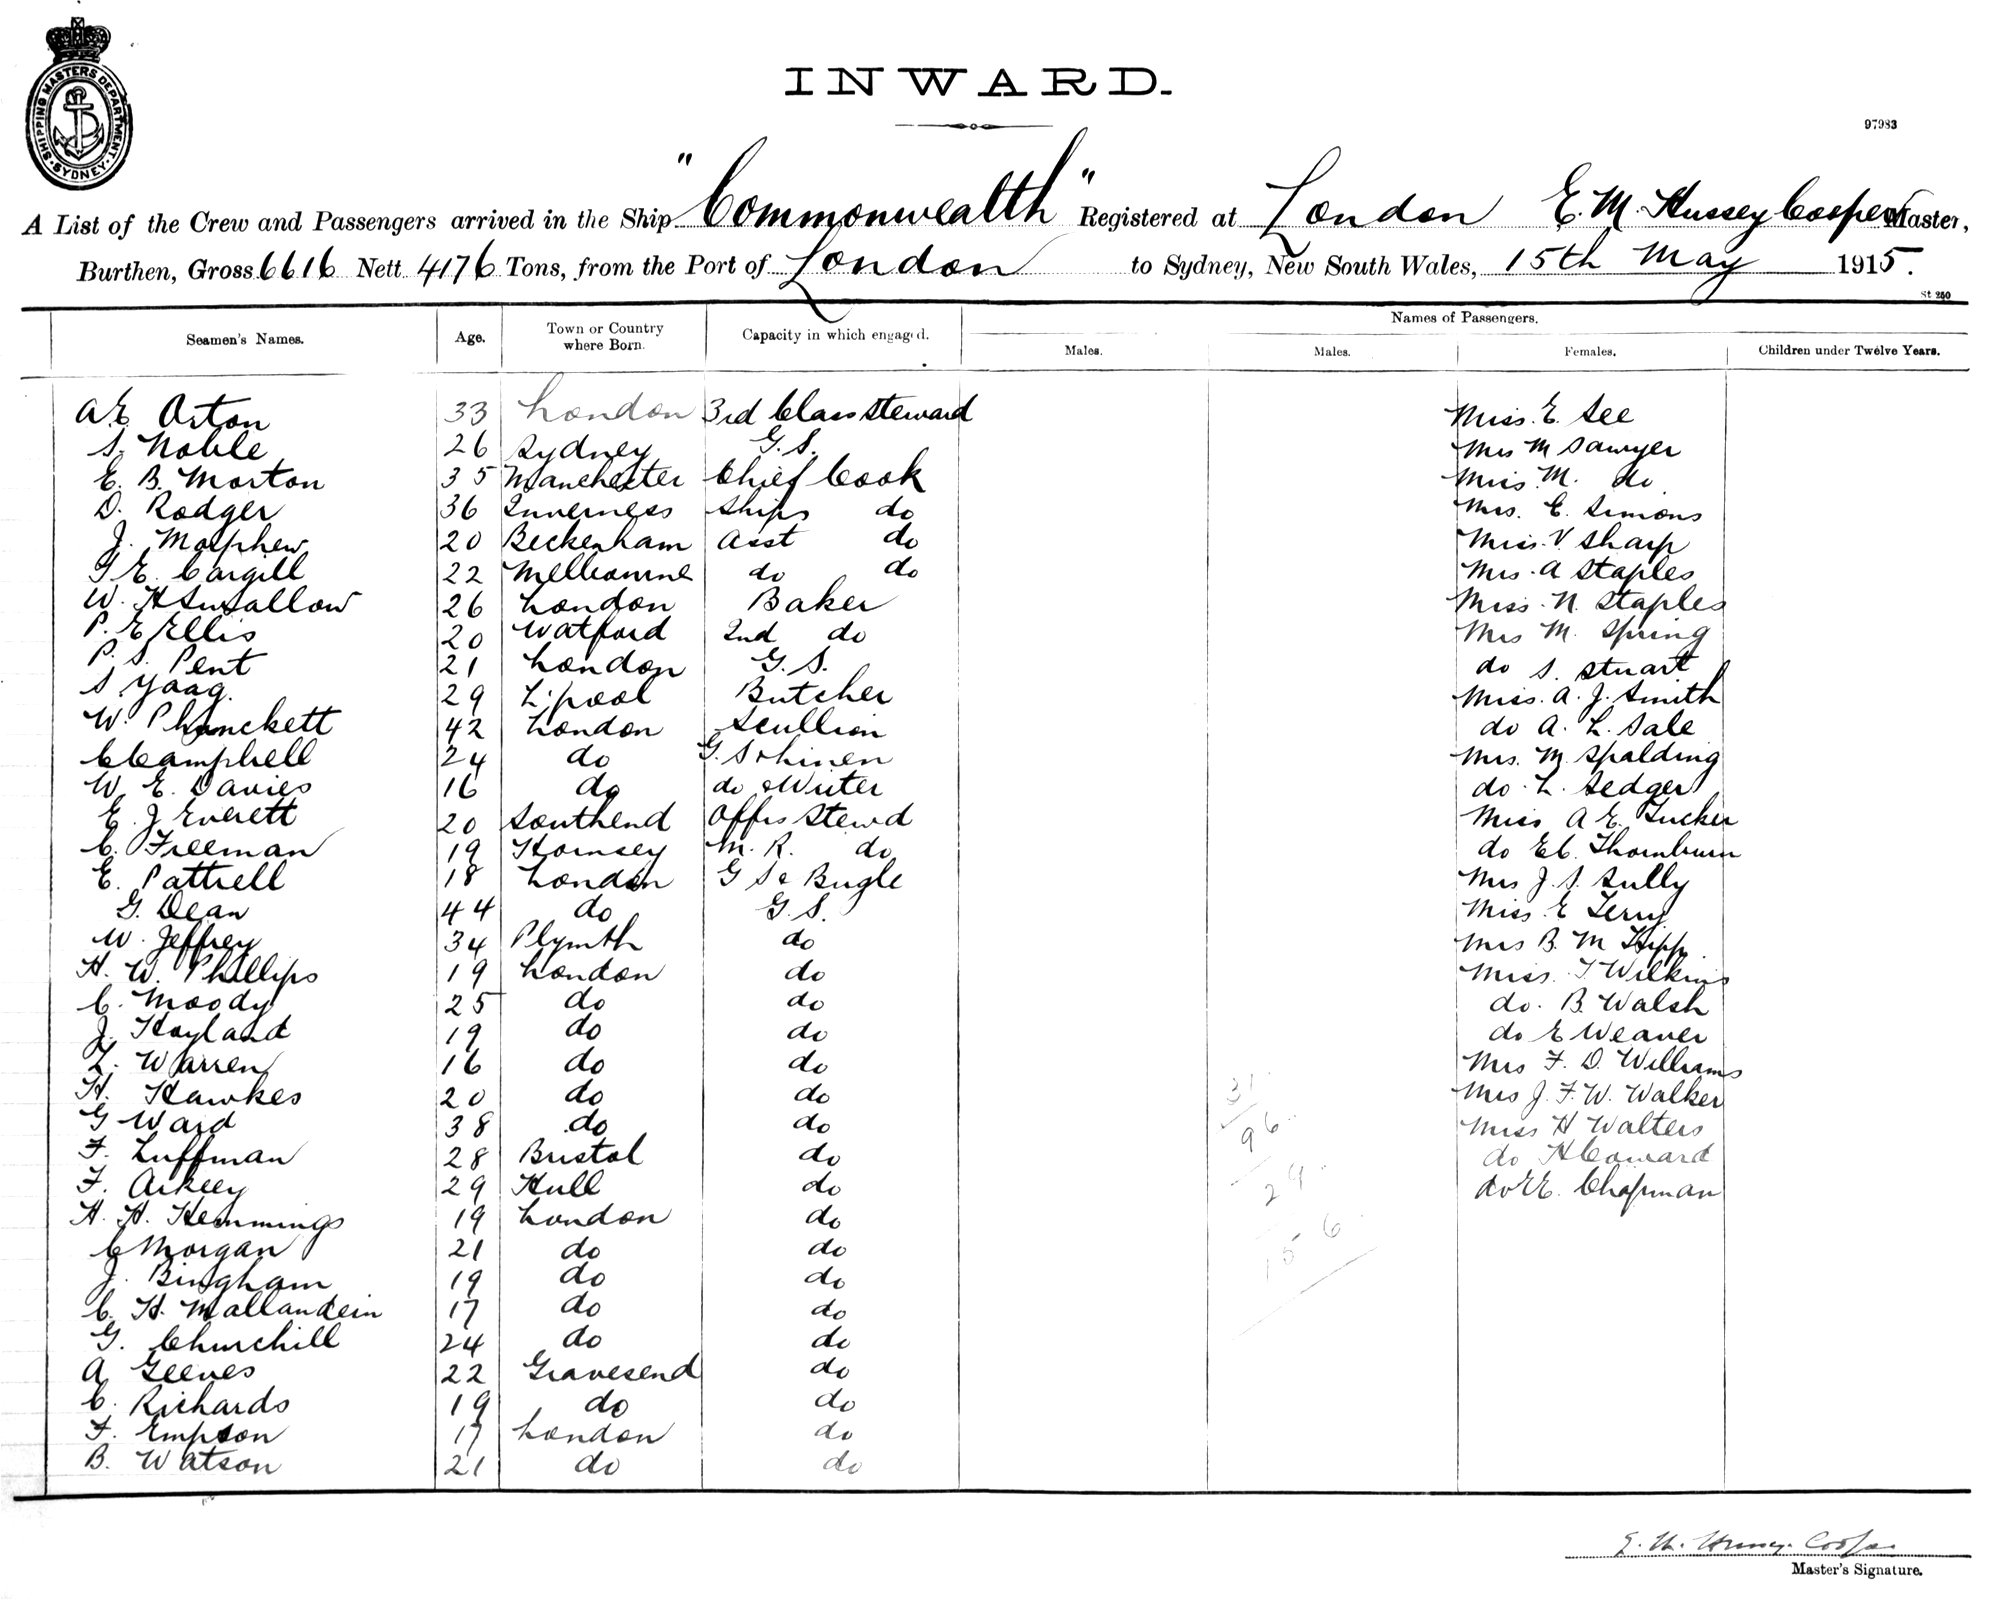 SHIPPING MASTERS DEPARTMENT. SYDNEY
INWARD.
97983
A List of the Crew and Passengers arrived in the Ship "Commonwealth" Registered at London E. M. Hussey Cooper Master,
Burthen, Gross 6616 Nett 4176 Tons, from the Port of London to Sydney, New South Wales, 15th May 1915.
St 250
Seamen's Names. Age. Town or Country where Born. Capacity in which engaged. Names of Passengers.
Males. Males. Females. Children under Twelve Years.
A E Orton 33 London 3rd Class Steward Miss. E. See
S. Noble 26 Sydney G. S. Mrs M Sawyer
E. B. Morton 35 Manchester Chief Cook Miss M. do
D. Rodger 36 Inverness Ships do Mrs. E. Simons
J. Morphew 20 Beckenham Asst do Miss. V Sharp
G E. Cargill 22 Melbourne do do Mrs. A Staples
W. H Swallow 26 London Baker Miss. N. Staples
P. E Ellis 20 Watford 2nd do Mrs M. Spring
P. S. Pent 21 London G. S. do S. Stuart
S Yaag. 29 L'pool Butcher Miss. A. J. Smith
W. Plunckett 42 London Scullion do A. L. Sale
C Campbell 24 do G. S & Linen Mrs. M Spalding
W. E. Davies 16 do do & Writer do. L. Sedger
E. J Everett 20 Southend Offrs Stewd Miss A E. Tucker
C. Freeman 19 Hornsey M. R. do do E C. Thornburn
E. Pattrell 18 London G S & Bugle Mrs J. S. Sully
G. Dean 44 do G. S. Miss. E Terry
W. Jeffrey 34 Plymth do Mrs B. M Hipp
H. W. Phillips 19 London do Miss. T Wilkins
C. Moody 25 do do do. B. Walsh
J. Hayland 19 do do do E Weaver
L. Warren 16 do do Mrs F. D. Williams
H. Hawkes 20 do do Mrs J. F. W. Walker
G Ward 38 do do 31 Miss H Walters
F. Luffman 28 Bristol do 96 do H Coward
F. Arkley 29 Hull do 29 do E E. Chapman
H. H. Hemmings 19 London do 156
C Morgan 21 do do
J. Bingham 19 do do
C. H. Mallandein 17 do do
G. Churchill 24 do do
A Geeves 22 Gravesend do
C. Richards 19 do do
F. Empson 17 London do
B. Watson 21 do do
E. M. Hussey Cooper
Master's Signature.